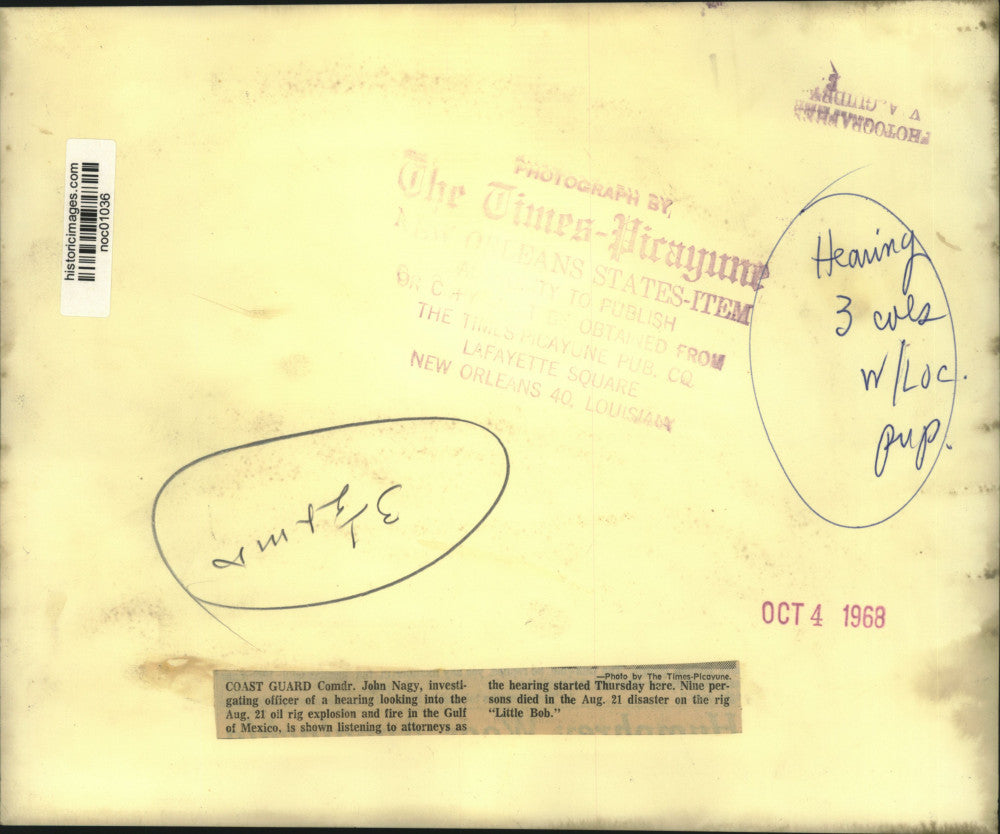 PHOTOGRAPHER
V. A. GUIDRY
historicimages.com
noc01036
PHOTOGRAPH BY
The Times-Picayune
NEW ORLEANS STATES-ITEM
TO PUBLISH
OBTAINED FROM
THE TIMES-PICAYUNE PUB. CO.
LAFAYETTE SQUARE
NEW ORLEANS 40, LOUISIANA
Hearing
3 cols
W/Loc.
pup.
3
OCT 4 1968
COAST GUARD Comdr. John Nagy, investi-
gating officer of a hearing looking into the
Aug. 21 oil rig explosion and fire in the Gulf
of Mexico, is shown listening to attorneys as
—Photo by The Times-Picayune.
the hearing started Thursday here. Nine per-
sons died in the Aug. 21 disaster on the rig
"Little Bob."